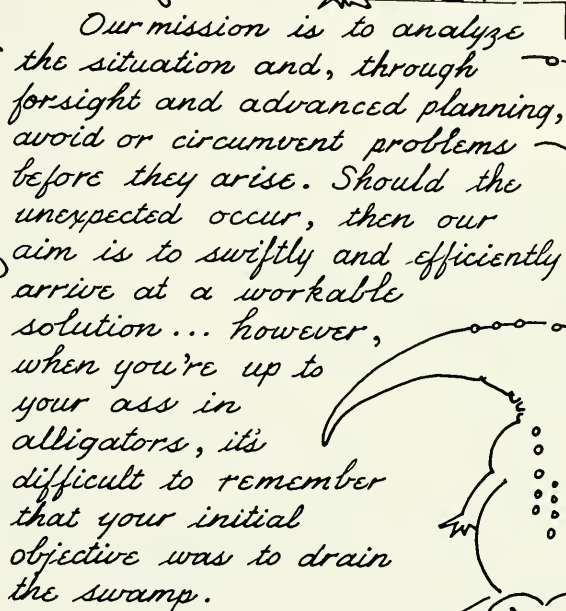 Our mission is to analyze
the situation and, through
forsight and advanced planning,
avoid or circumvent problems
before they arise. Should the
unexpected occur, then our
aim is to swiftly and efficiently
arrive at a workable
solution... however,
when you're up to
your ass in
alligators, it's
difficult to remember
that your initial
objective was to drain
the swamp.